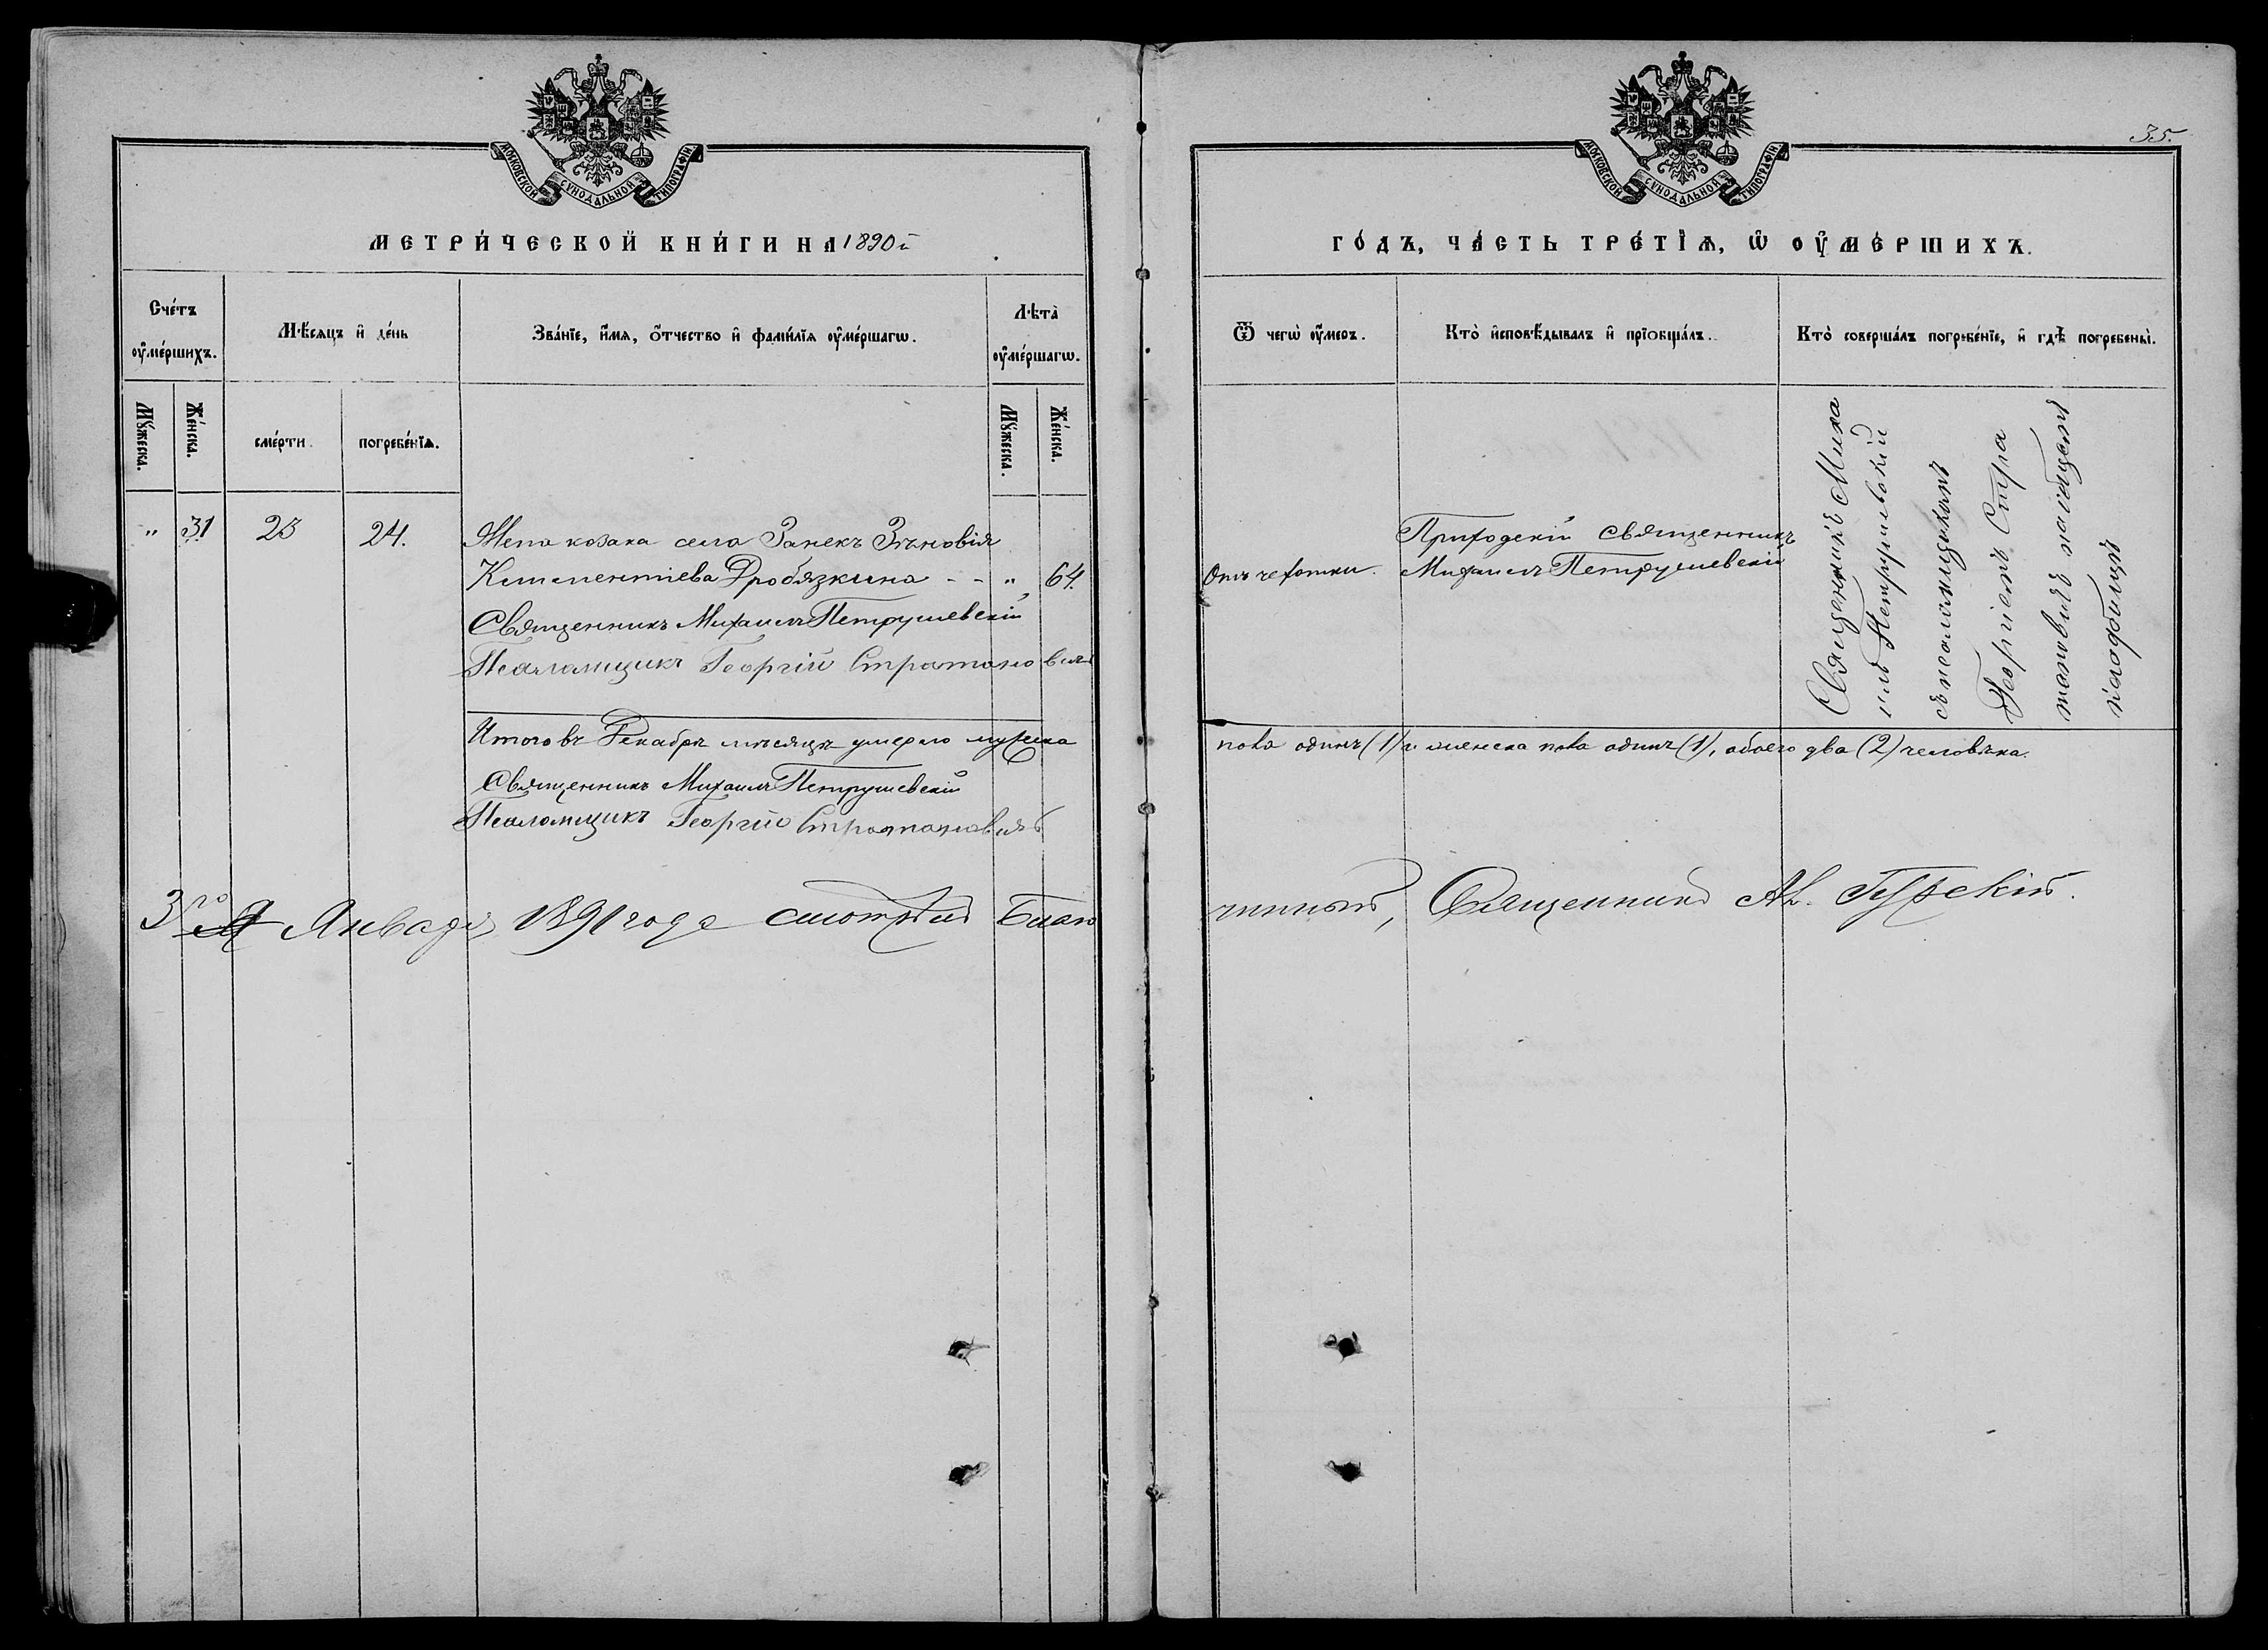 МОСКОВСКОЙ СѴНОДАЛЬНОЙ ТИПОГРАФІИ
МЕТРИ́ЧЕСКОЙ КНИ́ГИ НА 1890й
Сче́тъ оу҆ме́ршихъ.
Мѣ́сяцъ и҆ де́нь
Зва́нїе, и҆́мя, ѻ҆́тчество и҆ фами́лїя оу҆ме́ршагѡ.
Лѣта̀ оу҆ме́ршагѡ.
Мꙋ́жеска.
Же́нска.
сме́рти.
погребе́нїѧ.
Мꙋ́жеска.
Же́нска.
" 31 23 24. Жена козака села Занекъ Зѣновія
Климентіева Дробязкина - - " 64.
Священникъ Михаилъ Петрушевскій
Псаломщикъ Георгій Стратановичъ
Итого въ Декабрѣ мѣсяцѣ умерло мужска
Священникъ Михаилъ Петрушевскій
Псаломщикъ Георгій Стратановичъ
3го Января 1891 года смотрѣлъ Благо
35.
МОСКОВСКОЙ СѴНОДАЛЬНОЙ ТИПОГРАФІИ
ГО́ДЪ, ЧА́СТЬ ТРЕ́ТЇѦ, Ѡ҆ ОУ҆МЕ́РШИХЪ.
Ѿ чегѡ̀ оу҆́меръ.
Кто̀ и҆сповѣ́дывалъ и҆ прїѻбща́лъ.
Кто̀ соверша́лъ погребе́нїе, и҆ гдѣ̀ погребены̀.
Отъ чехотки.
Приходскій священникъ
Михаилъ Петрушевскій
Священникъ Миха
илъ Петрушевскій
съ псаломщикомъ
Георгіемъ Стра
тановичъ на общемъ
кладбищѣ
пола одинъ (1) и женска пола одинъ (1), обоего два (2) человѣка.
чинный, Священникъ Ал. Гурскій.